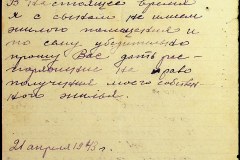 В настоящее время
я с сынами не имеем
жилого помещения и
по сему убедительно
прошу Вас дать рас-
поряжение на право
получения моего собствен-
ного жилья.
21 апреля 1943 г.